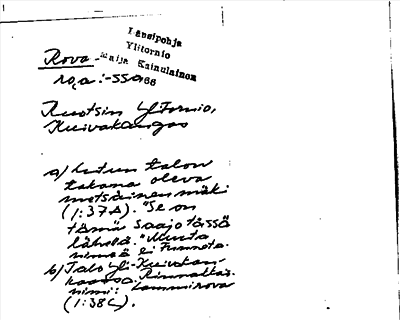 Länsipohja
Ylitornio
Maija Kainulainen
66
Rova
ro̭a :-ssa
Ruotsin Ylitornio,
Kuivakangas
a) talon
takana oleva
metsäinen mäki
(1:37A). "Se on
tämä saajo tässä
lähellä." Muuta
nimeä ei tunneta.
b) Talo Yli-Kuivakan-
kaassa. Rinnakkais-
nimi: Lammirova
(1:38C).